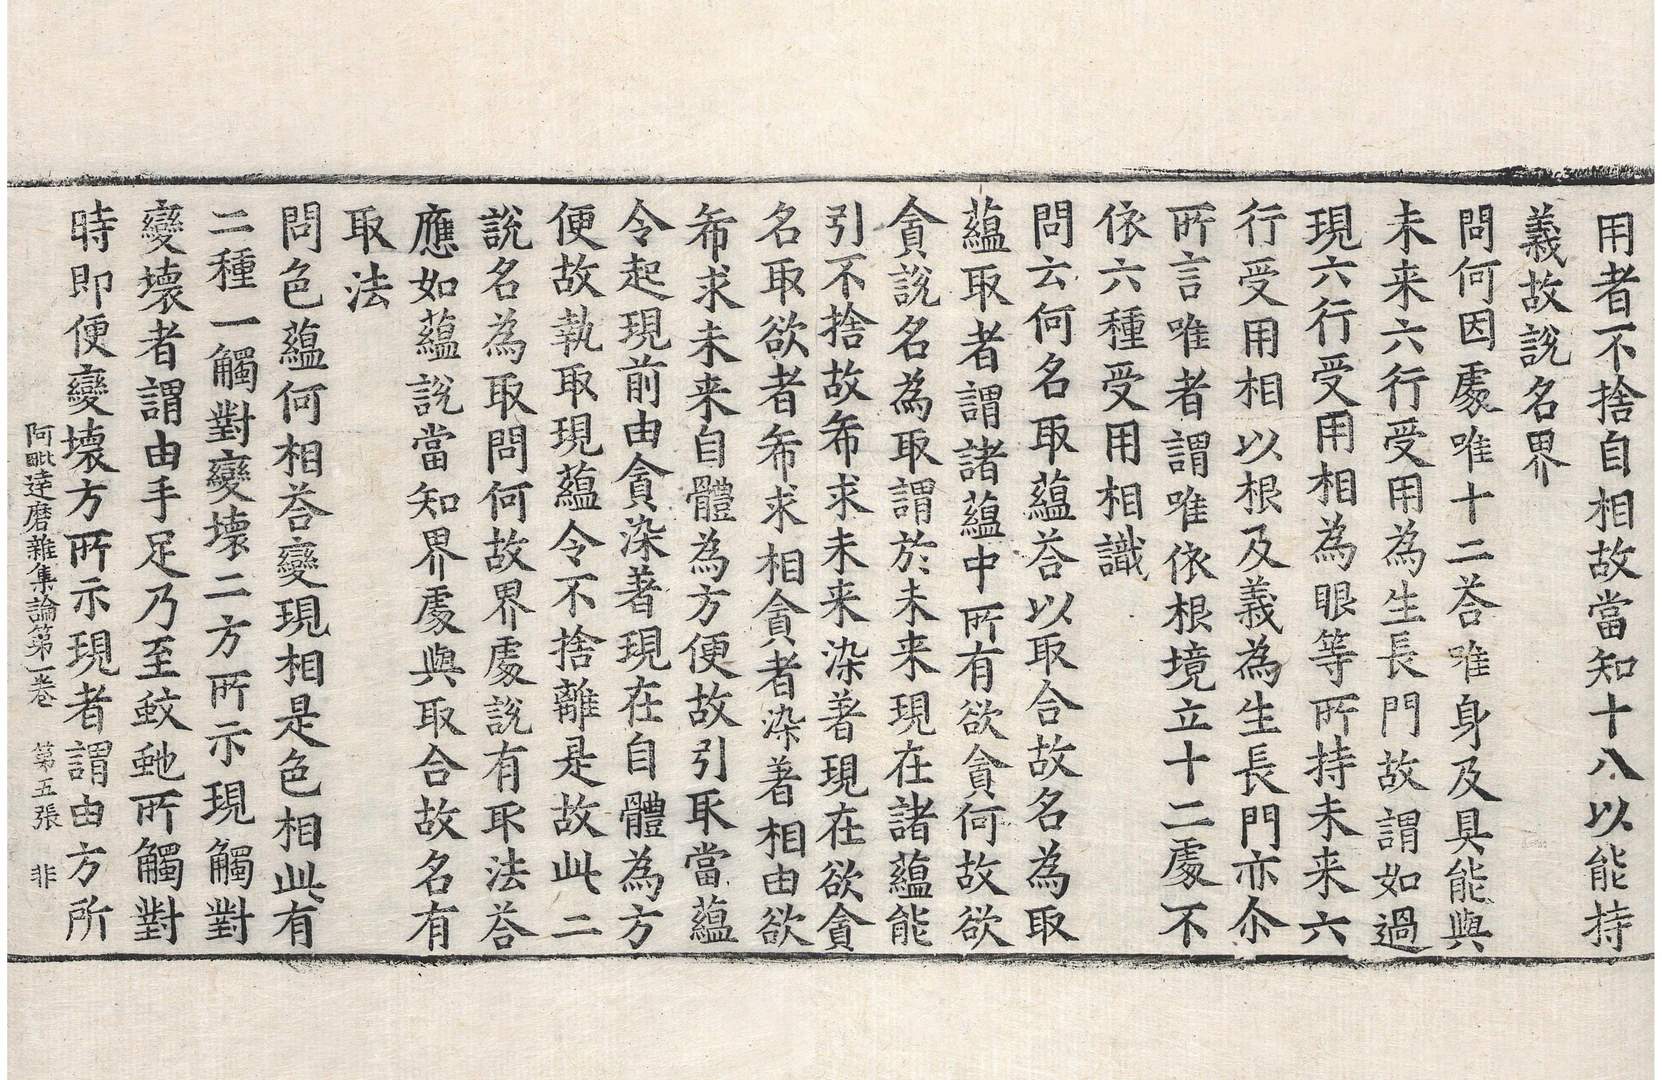 用者不捨自相故當知十八以能持
義故說名界
問何因處唯十二荅唯身及具能與
未来六行受用為生長門故謂如過
現六行受用相為眼等所持未来六
行受用相以根及義為生長門亦尒
所言唯者謂唯依根境立十二處不
依六種受用相識
問云何名取蘊荅以取合故名為取
蘊取者謂諸蘊中所有欲貪何故欲
貪說名為取謂於未来現在諸蘊能
引不捨故希求未来染著現在欲貪
名取欲者希求相貪者染著相由欲
希求未来自體為方便故引取當蘊
令起現前由貪染著現在自體為方
便故執取現蘊令不捨離是故此二
說名為取問何故界處說有取法荅
應如蘊說當知界處與取合故名有
取法
問色蘊何相荅變現相是色相此有
二種一觸對變壞二方所示現觸對
變壞者謂由手足乃至蚊虵所觸對
時即便變壞方所示現者謂由方所
阿毗達磨雜集論第一卷 第五張 非